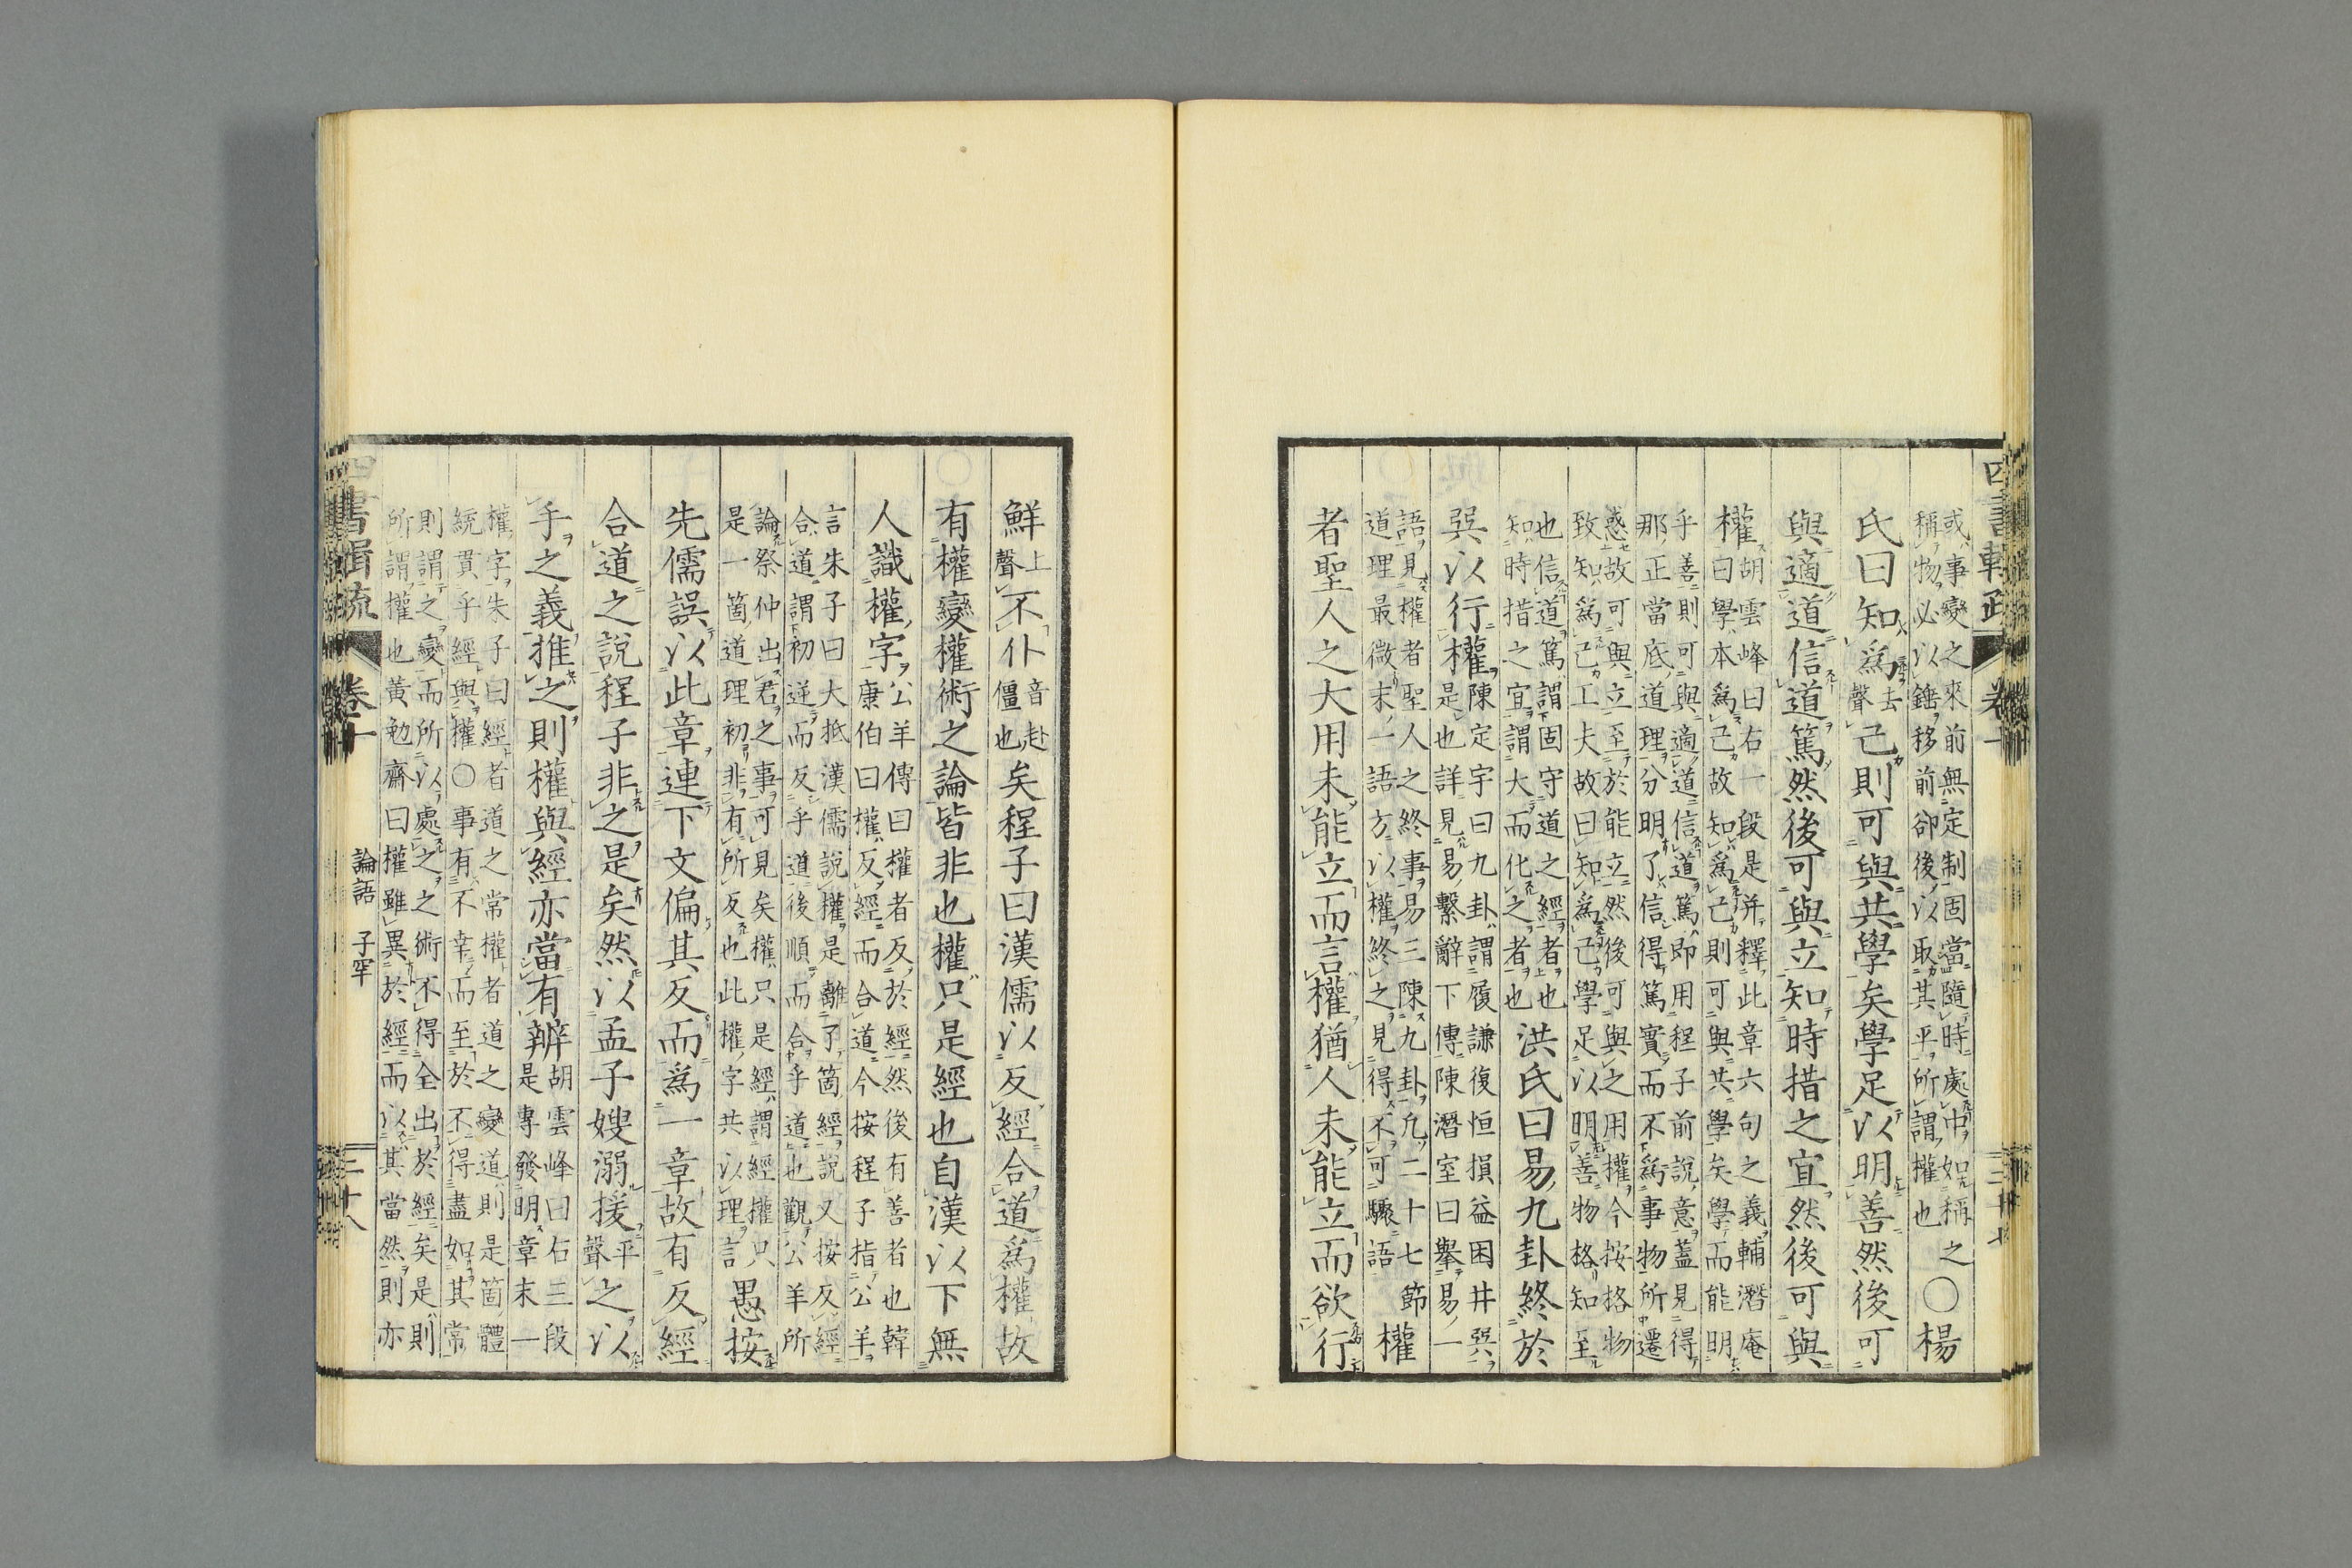 或事變之來前無定制固當隨時處中如稱之
稱物必以錘移前卻後以取其平所謂權也
○楊
氏曰知爲去聲己則可與共學矣學足以明善然後可
與適道信道篤然後可與立知時措之宜然後可與
權
胡雲峰曰右一段是并釋此章六句之義輔潛庵
曰學本爲己故知爲己則可與共學矣學而能明
乎善則可與適道信道篤即用程子前說意蓋見得
那正當底道理分明了信得篤實而不爲事物所遷
惑故可與立至於能立然後可與之用權今按格物
致知爲己工夫故曰知爲己學足以明善物格知至
也信道篤謂固守道之經者也
知時措之宜謂大而化之者也
洪氏曰易九卦終於
巽以行權
陳定宇曰九卦謂履謙復恒損益困井巽
是也詳見易繫辭下傳陳潛室曰擧易一
語見權者聖人之終事易三陳九卦凡二十七節
道理最微末一語方以權終之見得不可驟語
權
者聖人之大用未能立而言權猶人未能立而欲行
鮮上聲不仆音赴僵也矣程子曰漢儒以反經合道爲權故
有權變權術之論皆非也權只是經也自漢以下無
人識權字
公羊傳曰權者反於經然後有善者也韓
康伯曰權反經而合道今按程子指公羊
言朱子曰大抵漢儒說權是離了箇經說又按反經
合道謂初逆而反乎道後順而合乎道也觀公羊所
論祭仲出君之事可見矣權只是經謂經權只
是一箇道理初非有所反也此權字共以理言
愚按
先儒誤以此章連下文偏其反而爲一章故有反經
合道之說程子非之是矣然以孟子嫂溺援平聲之以
手之義推之則權與經亦當有辨
胡雲峰曰右三段
是專發明章末一
權字朱子曰經者道之常權者道之變道則是箇體
統貫乎經與權○事有不幸而至於不得盡如其常
則謂之變而所以處之之術不得全出於經矣是則
所謂權也黃勉齋曰權雖異於經而以其當然則亦
卷十
論語 子罕
三十八